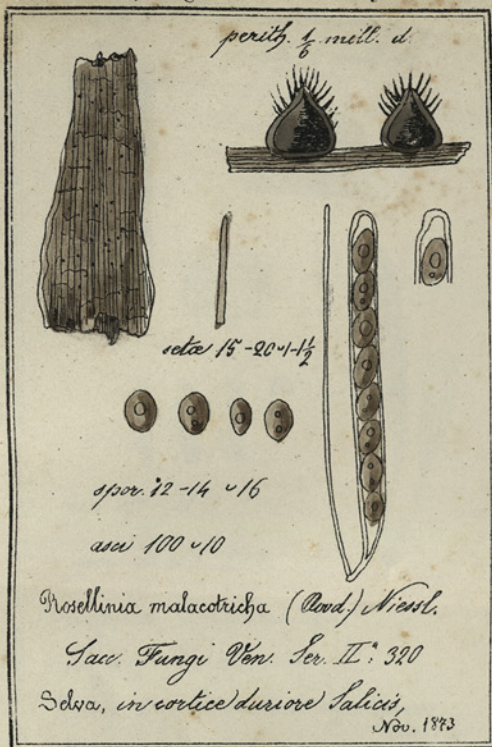 perith. 1/6 mill. d.
setæ 15-20 ᴗ 1-1½
spor. 12-14 ᴗ 16
asci 100 ᴗ 10
Rosellinia malacotricha (Awd.) Niessl.
Sacc. Fungi Ven. Ser. IIª: 320
Selva, in cortice duriore Salicis,
Nov. 1873